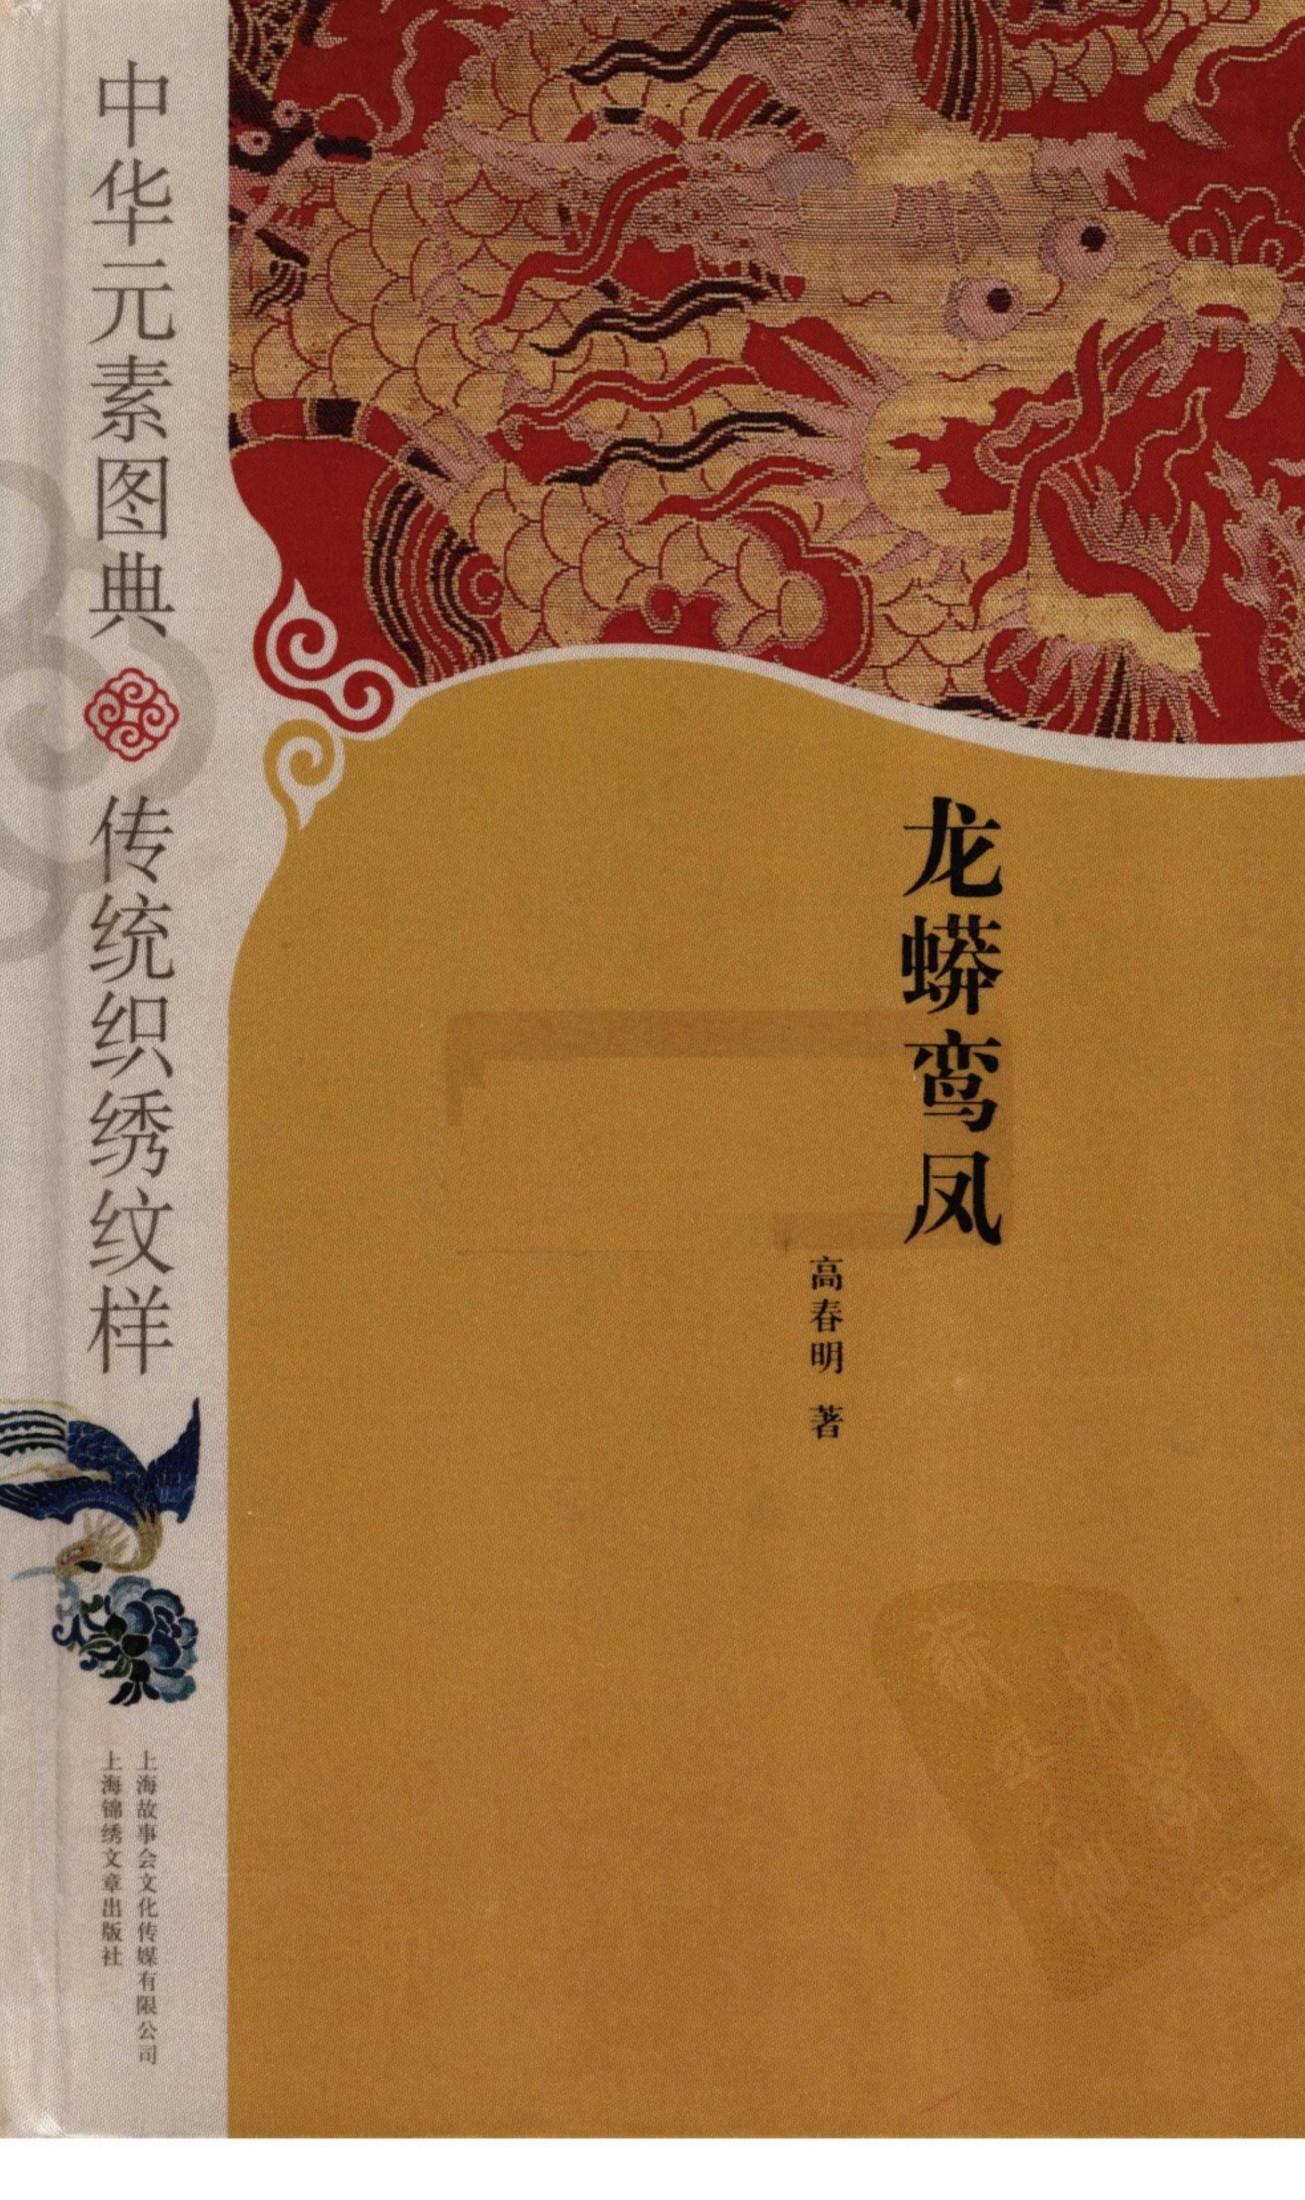 中华元素图典
传统织绣纹样
龙蟒鸾凤
高春明 著
上海故事会文化传媒有限公司
上海锦绣文章出版社